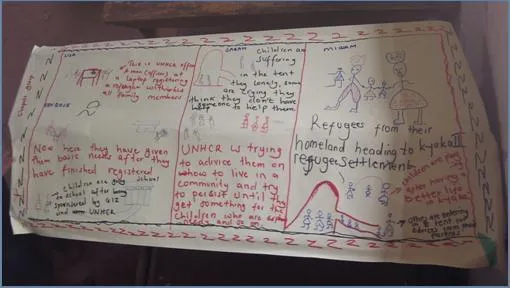 LISA
This is UNHCR office
a man (officer) at
a laptop registering
a refugee with
all family members
Now here they have given
them basic needs after they
have finished registered
school
Children are
to school after
sponsored by GIZ
and UNHCR
SARAH
Children are
suffering
in the tent
they lonely, some
are crying they
think they don't have
someone to help them.
UNHCR is trying
to advice them on
how to live in a
community and try
to persist until they
get something for the
children who are
needy and so on
MIRIAM
Refugees from their
homeland heading to Kyaka II
refugee settlement.
children are
after having a
better life
in Kyaka
are entering
a tent
advices from their